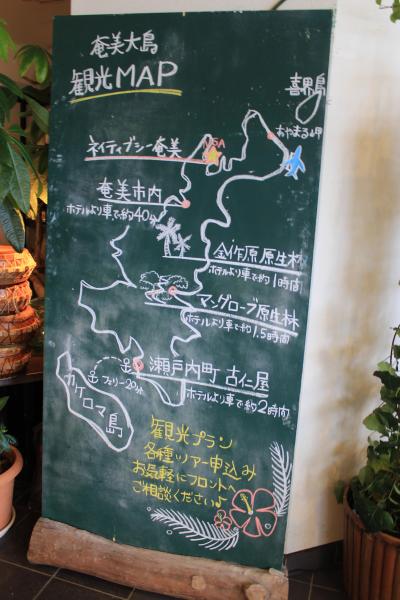 奄美大島
観光MAP
喜界島
あやまる岬
NSA
ネイティブシー奄美
奄美市内
ホテルより車で約40分
金作原原生林
ホテルより車で約1時間
マングローブ原生林
ホテルより車で約1.5時間
瀬戸内町 古仁屋
ホテルより車で約2時間
フェリー20分
カケロマ島
観光プラン
各種ツアー申込み
お気軽にフロントへ
ご相談ください♪